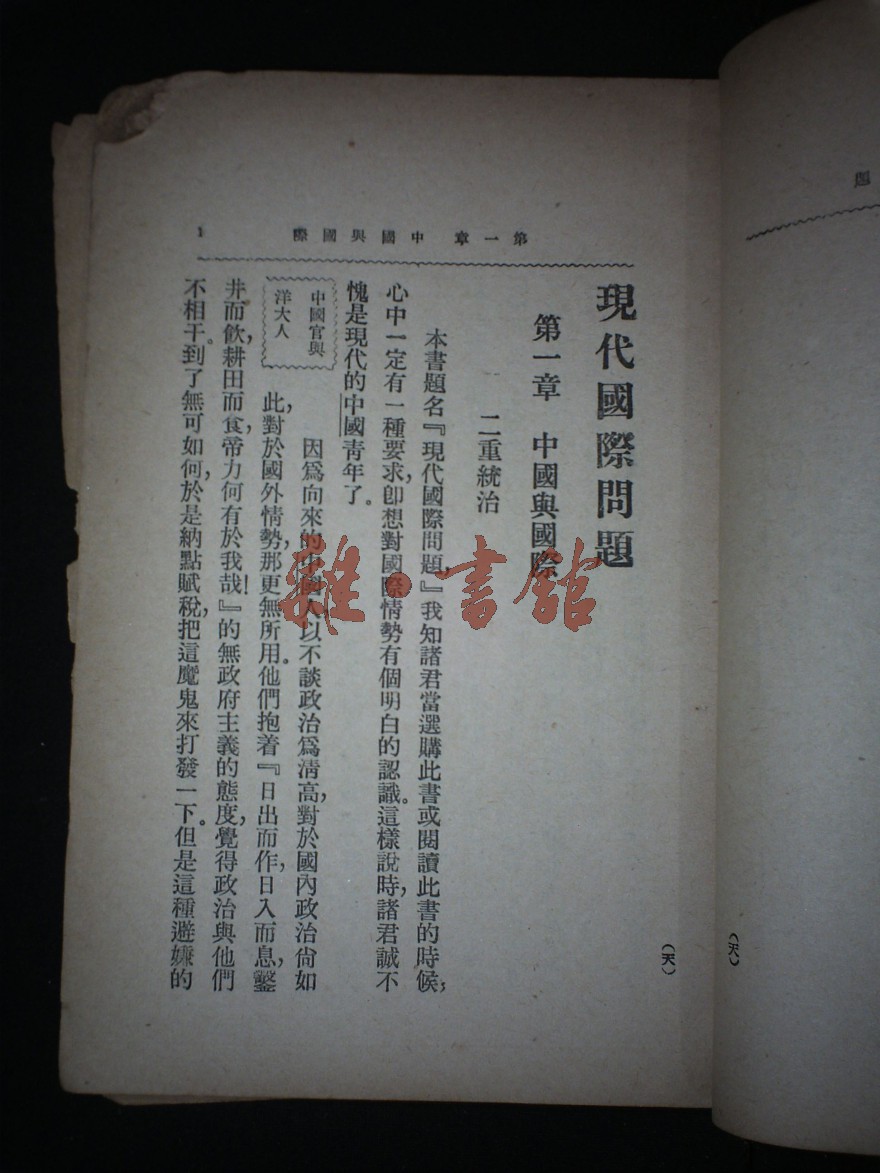 題
(天)
第一章 中國與國際
1
現代國際問題
(天)
第一章 中國與國際
二重統治
本書題名『現代國際問題』我知諸君當選購此書或閱讀此書的時候，
心中一定有一種要求，卽想對國際情勢有個明白的認識。這樣說時，諸君誠不
愧是現代的中國青年了。
中國官與
洋大人
因爲向來的中國人，以不談政治爲淸高，對於國內政治尙如
此，對於國外情勢，那更無所用。他們抱着『日出而作，日入而息，鑿
井而飮，耕田而食，帝力何有於我哉！』的無政府主義的態度，覺得政治與他們
不相干。到了無可如何，於是納點賦稅，把這魔鬼來打發一下。但是這種避嫌的
雜·書館